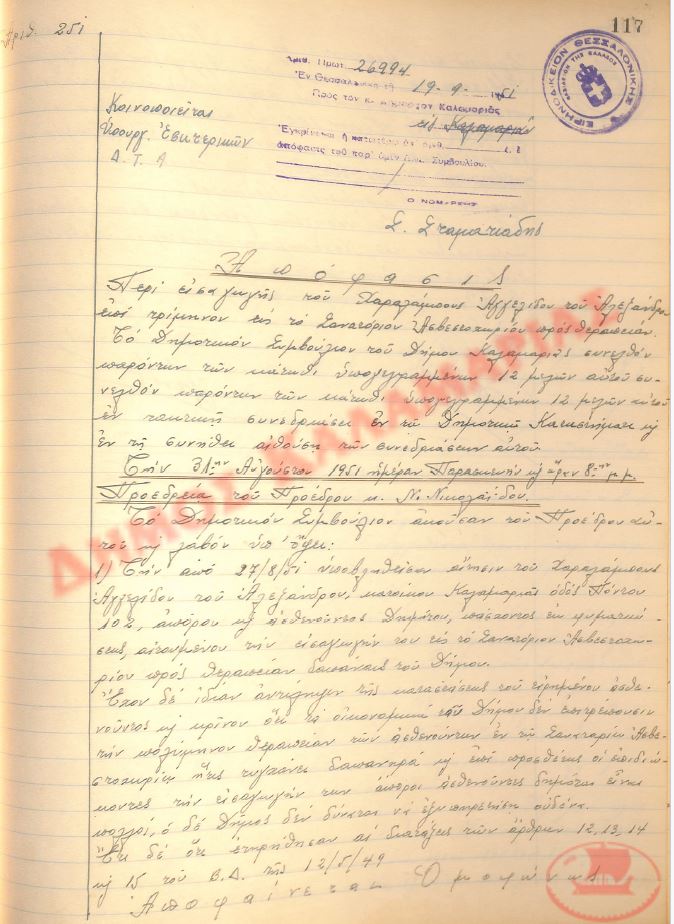 Αριθ. 251
117
Αριθ. Πρωτ. 26994
Ἐν Θεσσαλονίκῃ τῇ 19-9-1951
Πρὸς τὸν κ. Δήμαρχον Καλαμαριᾶς
εἰς Καλαμαριάν
Ἐγκρίνεται ἡ κατωτέρω ὑπ' ἀριθ.
ἀπόφασις τοῦ παρ' ὑμῖν Δημ. Συμβουλίου.
Ο ΝΟΜΑΡΧΗΣ
Σ. Σταματιάδης
ΕΙΡΗΝΟΔΙΚΕΙΟΝ ΘΕΣΣΑΛΟΝΙΚΗΣ
ΒΑΣΙΛΕΙΟΝ ΤΗΣ ΕΛΛΑΔΟΣ
Κοινοποιεῖται
Ὑπουργ. Ἐσωτερικῶν
Δ.Τ.Α
Ἀπόφασις
Περὶ εἰσαγωγῆς τοῦ Χαραλάμπους Ἀγγελίδου τοῦ Ἀλεξάνδρου
ἐπὶ τρίμηνον εἰς τὸ Σανατόριον Ἀσβεστοχωρίου πρὸς θεραπείαν.
Τὸ Δημοτικὸν Συμβούλιον τοῦ Δήμου Καλαμαριᾶς συνελθὸν
παρόντων τῶν κάτωθι ὑπογεγραμμένων 12 μελῶν αὐτοῦ συ-
νελθὸν παρόντων τῶν κάτωθι ὑπογεγραμμένων 12 μελῶν αὐτοῦ
ἐν τακτικῇ συνεδριάσει ἐν τῷ Δημοτικῷ Καταστήματι κ
ἐν τῇ συνήθει αἰθούσῃ τῶν συνεδριάσεων αὐτοῦ.
Τὴν 31ην Αὐγούστου 1951 ἡμέραν Παρασκευὴν κ ὥραν 8ην μ.μ.
Προεδρείᾳ τοῦ Προέδρου κ. Ν. Νικολαΐδου.
Τὸ Δημοτικὸν Συμβούλιον ἀκοῦσαν τοῦ Προέδρου αὐ-
τοῦ κ λαβὸν ὑπ' ὄψει:
1) Τὴν ἀπὸ 27/8/51 ὑποβληθεῖσαν αἴτησιν τοῦ Χαραλάμπους
Ἀγγελίδου τοῦ Ἀλεξάνδρου, κατοίκου Καλαμαριᾶς ὁδὸς Πόντου
102, ἀπόρου κ ἀσθενοῦντος Δημότου, πάσχοντος ἐκ φυματιώ-
σεως, αἰτουμένου τὴν εἰσαγωγήν του εἰς τὸ Σανατόριον Ἀσβεστοχω-
ρίου πρὸς θεραπείαν δαπάναις τοῦ Δήμου.
Ἔχον δὲ ἰδίαν ἀντίληψιν τῆς καταστάσεως τοῦ εἰρημένου ἀσθε-
νοῦντος κ κρῖνον ὅτι τὰ οἰκονομικὰ τοῦ Δήμου δὲν ἐπιτρέπουσιν
τὴν πολύμηνον θεραπείαν τῶν ἀσθενούντων ἐν τῷ Ἀσβε-
στοχωρίῳ ἥτις τυγχάνει δαπανηρὰ κ ἐπὶ προσθέτως οἱ ἐπιδιώ-
κοντες τὴν εἰσαγωγήν των ἄποροι ἀσθενοῦντες δημόται εἶναι
πολλοί, ὁ δὲ Δῆμος δὲν δύναται νὰ ἐξυπηρετήσῃ οὐδένα.
Ἔτι δὲ ὅτι ἐτηρήθησαν αἱ διατάξεις τῶν ἄρθρων 12, 13, 14
κ 15 τοῦ Β.Δ. τῆς 12/5/49
Ἀποφαίνεται Ὁμοφώνως
ΔΗΜΟΣ ΚΑΛΑΜΑΡΙΑΣ